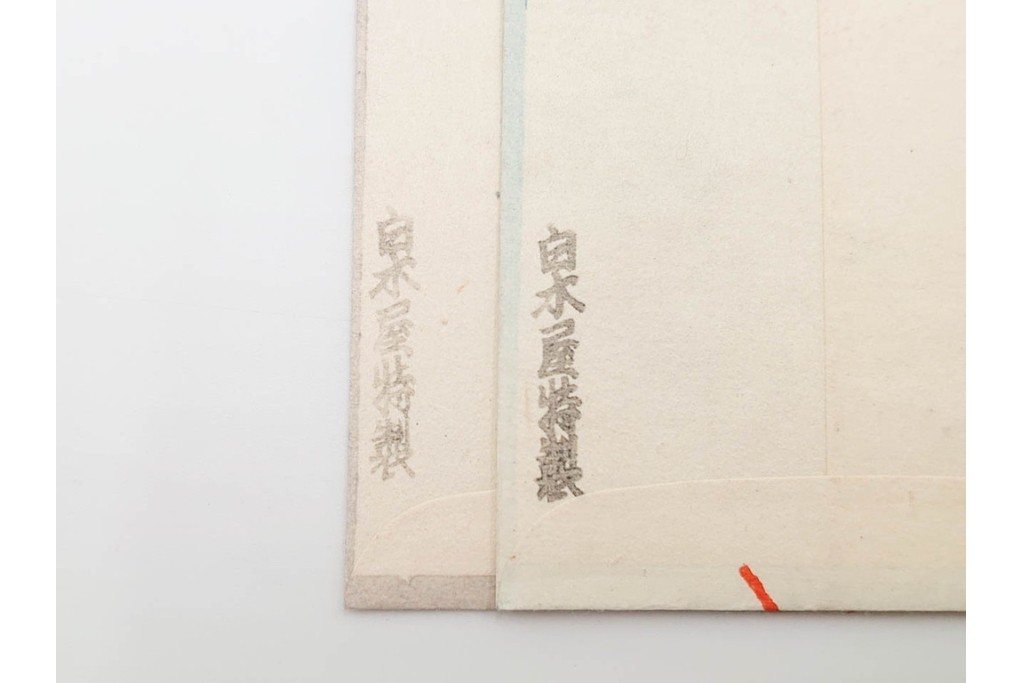 白木屋特製
白木屋特製